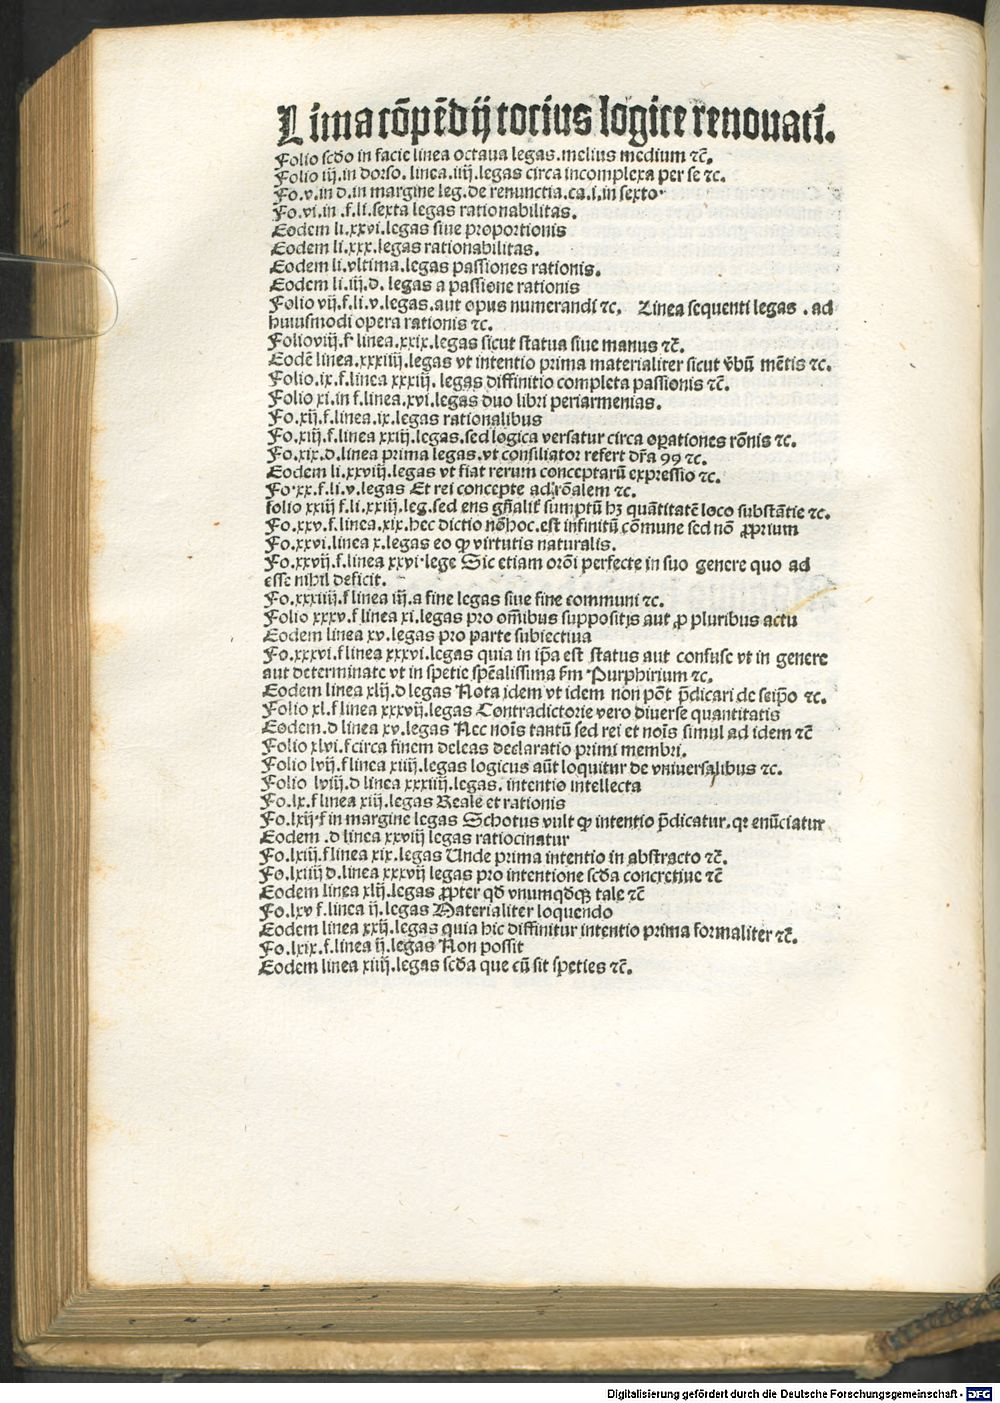 Lima cōpēdij tocius logice renouati.
Folio scďo in facie linea octaua legas.melius medium ⁊c̄.
Folio iij.in dorso.linea.iiij.legas circa incomplexa per se ⁊c.
Fo.v.in d.in margine leg.de renunctia.ca.i.in sexto·
Fo.vi.in .f.li.sexta legas rationabilitas.
Eodem li.xxvi.legas siue proportionis
Eodem li.xxx.legas rationabilitas.
Eodem li.vltima.legas passiones rationis.
Eodem li.iij.d. legas a passione rationis
Folio vij.f.li.v.legas.aut opus numerandi ⁊c. Linea sequenti legas .ad
huiusmodi opera rationis ⁊c.
Folio viij.f linea.xxix.legas sicut statua siue manus ⁊c̄.
Eodē linea.xxxiiij.legas vt intentio prima materialiter sicut v̄bū mētis ⁊c.
Folio.ix.f.linea xxxiij. legas diffinitio completa passionis ⁊c̄.
Folio xi.in f.linea.xvi.legas duo libri periarmenias.
Fo.xij.f.linea.ix.legas rationalibus
Fo.xiij.f.linea xxiij.legas.sed logica versatur circa oꝑationes rōnis ⁊c.
Fo.xix.d.linea prima legas.vt consiliator refert dr̄a 99 ⁊c.
Eodem li.xxviij.legas vt fiat rerum conceptarū expressio ⁊c.
Fo·xx.f.li.v.legas Et rei concepte ad rōalem ⁊c.
folio xxiij f.li.xxiij.leg.sed ens gn̄alit̄ sumptū hꝫ quātitatē loco substātie ⁊c.
Fo.xxv.f.linea.xix.hec dictio nō hoc.est infinitū cōmune sed nō ꝓprium
Fo.xxvi.linea x.legas eo ꝙ virtutis naturalis.
Fo.xxvij.f.linea xxvi·lege Sic etiam orōi perfecte in suo genere quo ad
esse nihil deficit.
Fo.xxxiiij.f linea iij.a fine legas siue fine communi ⁊c.
Folio xxxv.f linea xi.legas pro om̄ibus suppositis aut ꝓ pluribus actu
Eodem linea xv.legas pro parte subiectiua
Fo.xxxvi.f linea xxxvi.legas quia in ip̄a est status aut confuse vt in genere
aut determinate vt in spetie spēalissima fm̄ Purphirium ⁊c.
Eodem linea xlij.d legas Nota idem vt idem non pōt p̄dicari de seip̄o ⁊c.
Folio xl.f linea xxxvij.legas Contradictorie vero diuerse quantitatis
Eodem.d linea xv.legas Nec nois̄ tantū sed rei et nois̄ simul ad idem ⁊c̄
Folio xlvi.f circa finem deleas declaratio primi membri.
Folio lvij.f linea xiiij.legas logicus aūt loquitur de vniuersalibus ⁊c.
Folio lviij.d linea xxxiiij.legas. intentio intellecta
Fo.lx.f linea xiij.legas Reale et rationis
Fo.lxij·f in margine legas Schotus vult ꝙ intentio p̄dicatur.qꝛ enūciatur
Eodem .d linea xxviij legas ratiocinatur
Fo.lxiij.f linea xix.legas Unde prima intentio in abstracto ⁊c̄.
Fo.lxiiij d.linea xxxvij legas pro intentione scďa concretiue ⁊c̄
Eodem linea xlij.legas ꝓpter qď vnumqďqꝫ tale ⁊c̄
Fo.lxv f.linea ij.legas Materialiter loquendo
Eodem linea xxij.legas quia hic diffinitur intentio prima formaliter ⁊c̄.
Fo.lxix.f.linea ij.legas Non possit
Eodem linea xiiij.legas scďa que cū sit speties ⁊c̄.
Digitalisierung gefördert durch die Deutsche Forschungsgemeinschaft - DFG